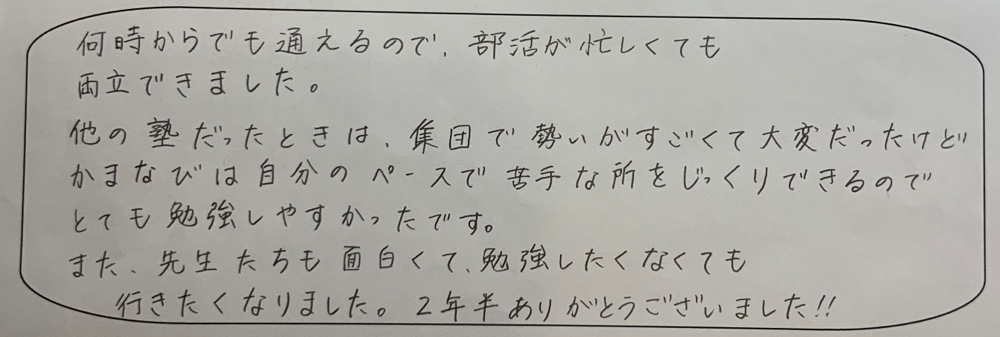 何時からでも通えるので、部活が忙しくても
両立できました。
他の塾だったときは、集団で勢いがすごくて大変だったけど
かまなびは自分のペースで苦手な所をじっくりできるので
とても勉強しやすかったです。
また、先生たちも面白くて、勉強したくなくても
行きたくなりました。2年半ありがとうございました!!